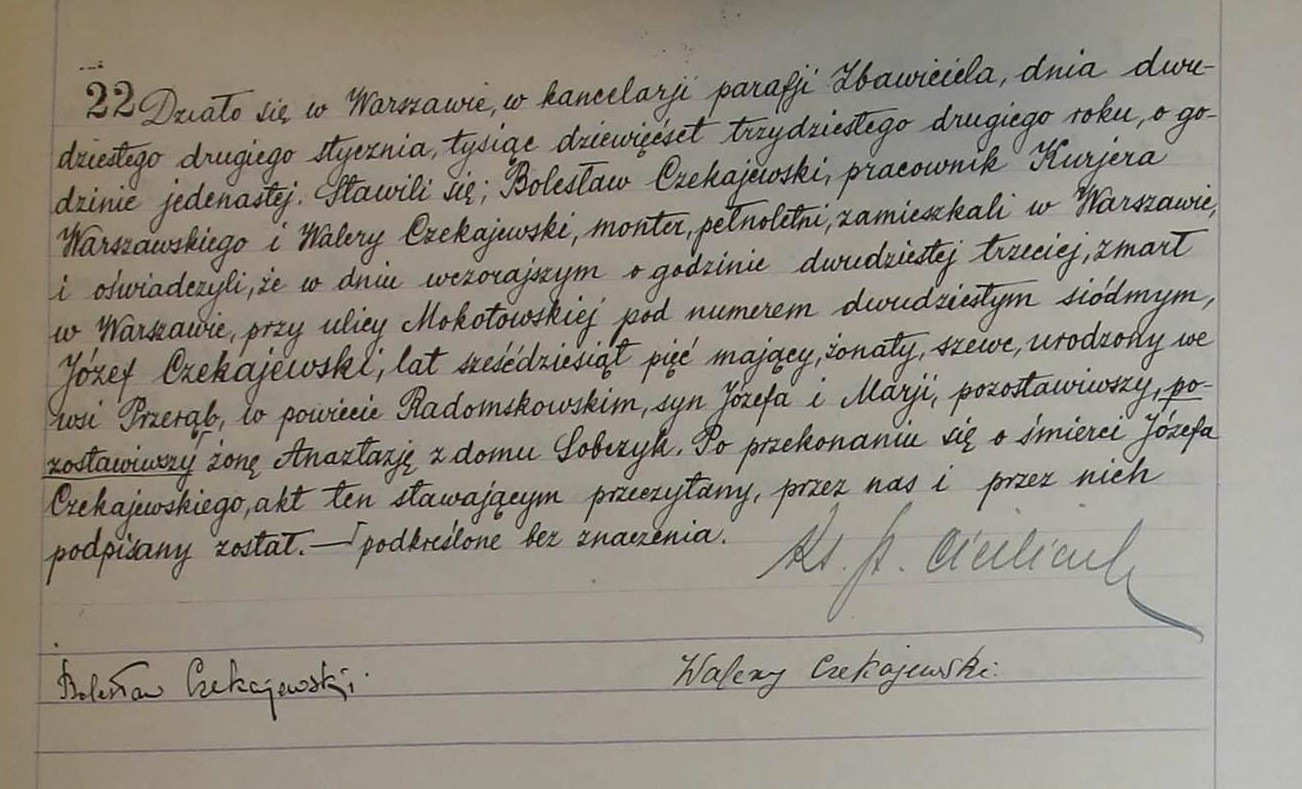 22 Działo się w Warszawie, w kancelarji parafji Zbawiciela, dnia dwu-
dziestego drugiego stycznia, tysiąc dziewięćset trzydziestego drugiego roku, o go-
dzinie jedenastej. Stawili się; Bolesław Czekajewski, pracownik Kurjera
Warszawskiego i Walery Czekajewski, monter, pełnoletni, zamieszkali w Warszawie,
i oświadczyli, że w dniu wczorajszym o godzinie dwudziestej trzeciej, zmarł
w Warszawie, przy ulicy Mokotowskiej pod numerem dwudziestym siódmym,
Józef Czekajewski, lat sześćdziesiąt pięć mający, żonaty, szewc, urodzony we
wsi Przerąb, w powiecie Radomskowskim, syn Józefa i Marji, pozostawiwszy, po-
zostawiwszy żonę Anaztazję z domu Sobczyk. Po przekonaniu się o śmierci Józefa
Czekajewskiego, akt ten stawającym przeczytany, przez nas i przez nich
podpisany został. — podkreślone bez znaczenia.
Ks.
Bolesław Czekajewski
Walery Czekajewski